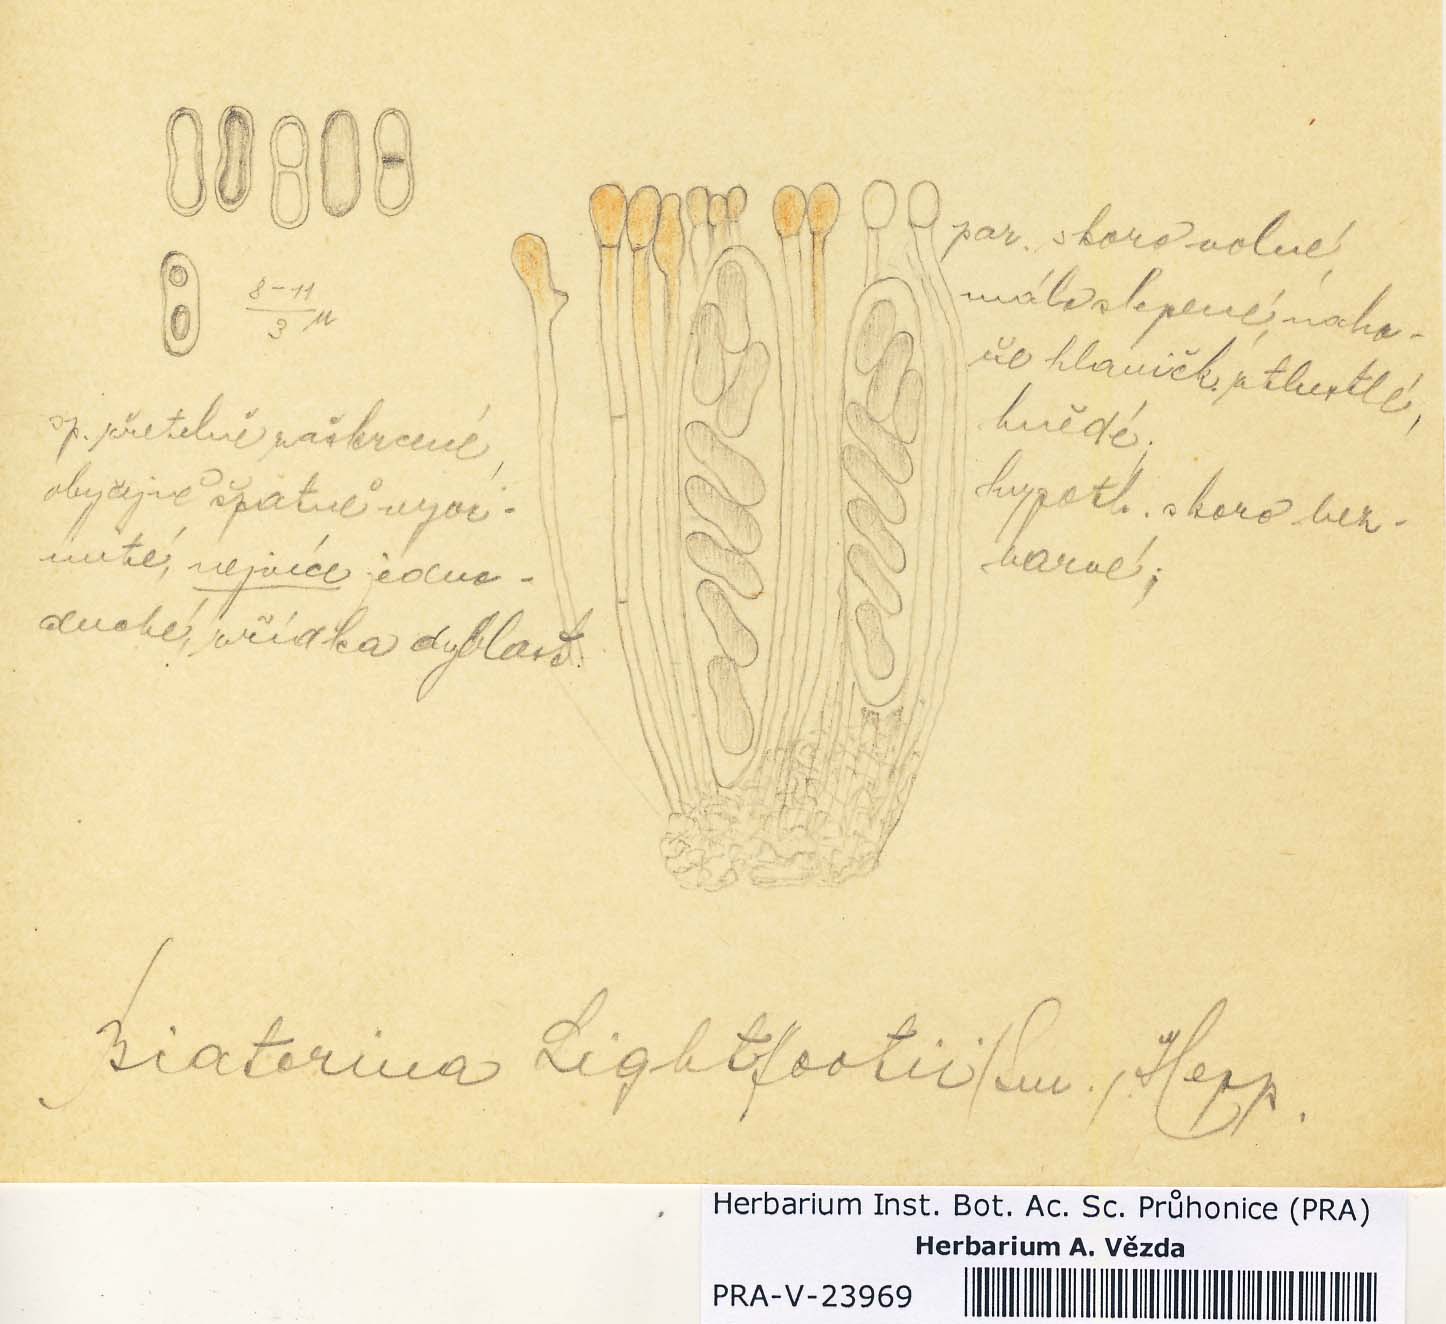 8-11
3 μ
sp. zřetelně zaškrcené,
obyčejně špatně vyvi-
nuté, nejvíce jedno-
duché, zřídka dyblast.
par. skoro volné,
málo slepené, naho-
ře hlavičk. ztlustlé,
hnědé;
hypoth. skoro bez-
barvé;
Biatorina Lightfootii (Sm.) Hepp.
Herbarium Inst. Bot. Ac. Sc. Průhonice (PRA)
Herbarium A. Vězda
PRA-V-23969